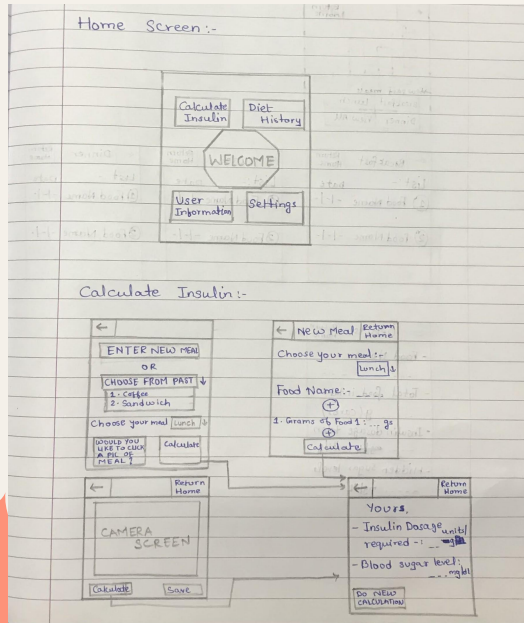 Home Screen:-
Calculate
Insulin
Diet
History
WELCOME
User
Information
Settings
Calculate Insulin:-
←
ENTER NEW MEAL
OR
CHOOSE FROM PAST ↓
1. Coffee
2. Sandwich
Choose your meal Lunch ↓
WOULD YOU
LIKE TO CLICK
A PIC OF
MEAL?
Calculate
← New Meal Return
Home
Choose your meal:-
Lunch ↓
Food Name:-
+
1. Grams of Food 1: ... gs
+
Calculate
← Return
Home
CAMERA
SCREEN
Calculate
Save
← Return
Home
Yours,
- Insulin Dosage
required -: __ units/
- Blood sugar level:
... mg/dl
DO NEW
CALCULATION